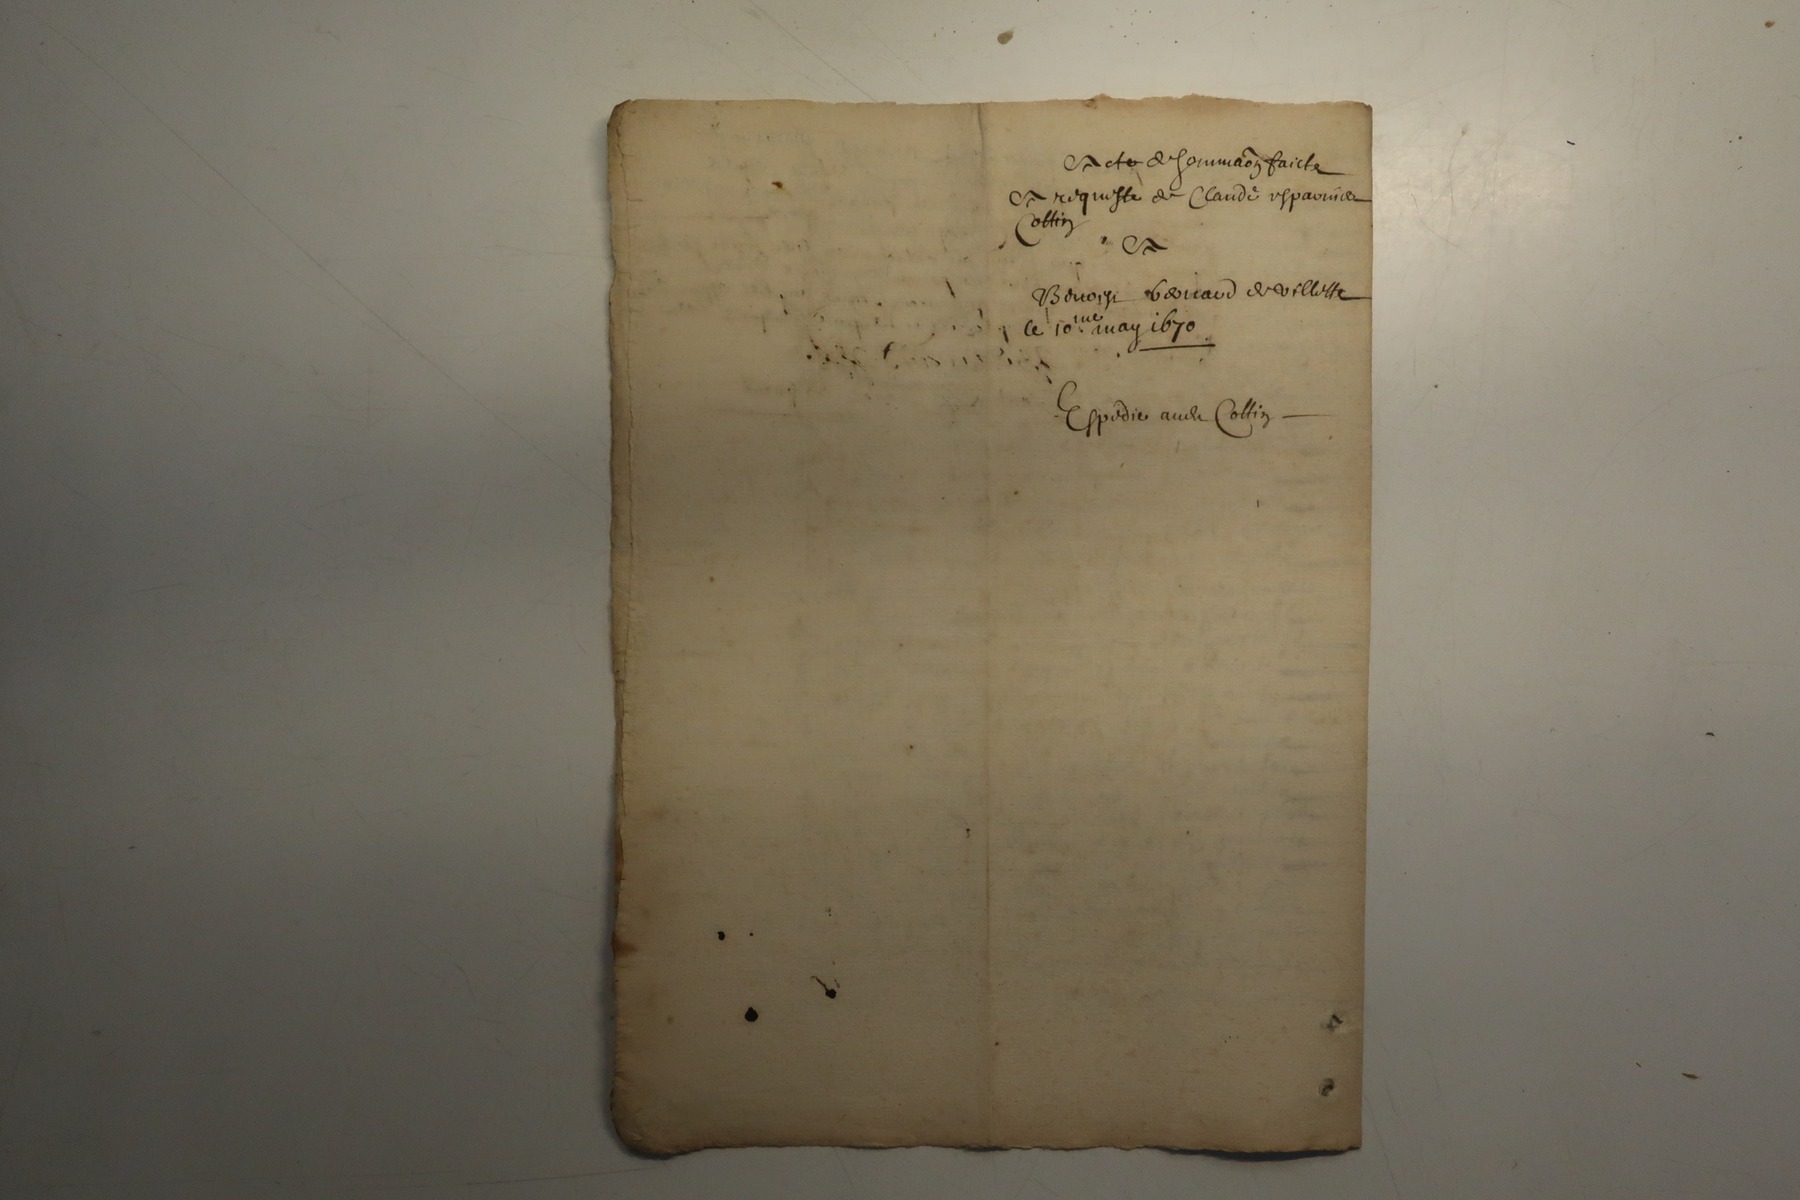 Acte de sommaõn faicte
A requeste de Claude
Cottin
A
Benoist de Villette
le 10.me may 1670
Expedie audit Cottin